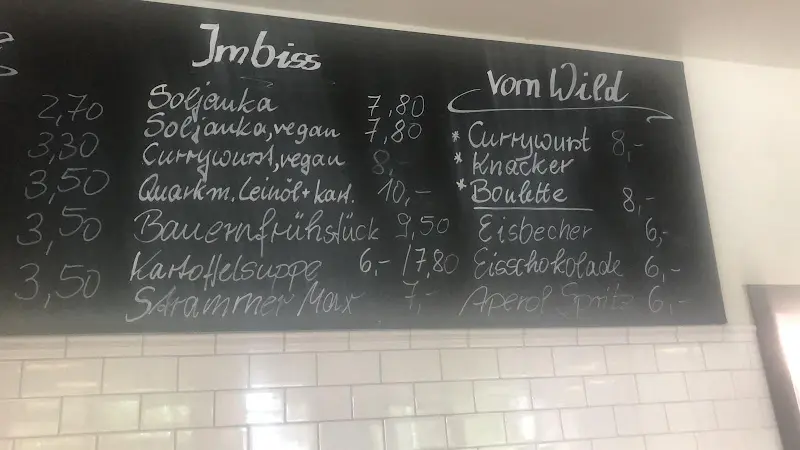 2,70
3,30
3,50
3,50
3,50
Imbiss
Soljanka 7,80
Soljanka, vegan 7,80
Currywurst, vegan 8,-
Quark m. Leinöl + kart. 10,-
Bauernfrühstück 9,50
Kartoffelsuppe 6,- / 7,80
Strammer Max 7,-
vom Wild
* Currywurst 8,-
* Knacker
* Boulette 8,-
Eisbecher 6,-
Eisschokolade 6,-
Aperol Spritz 6,-